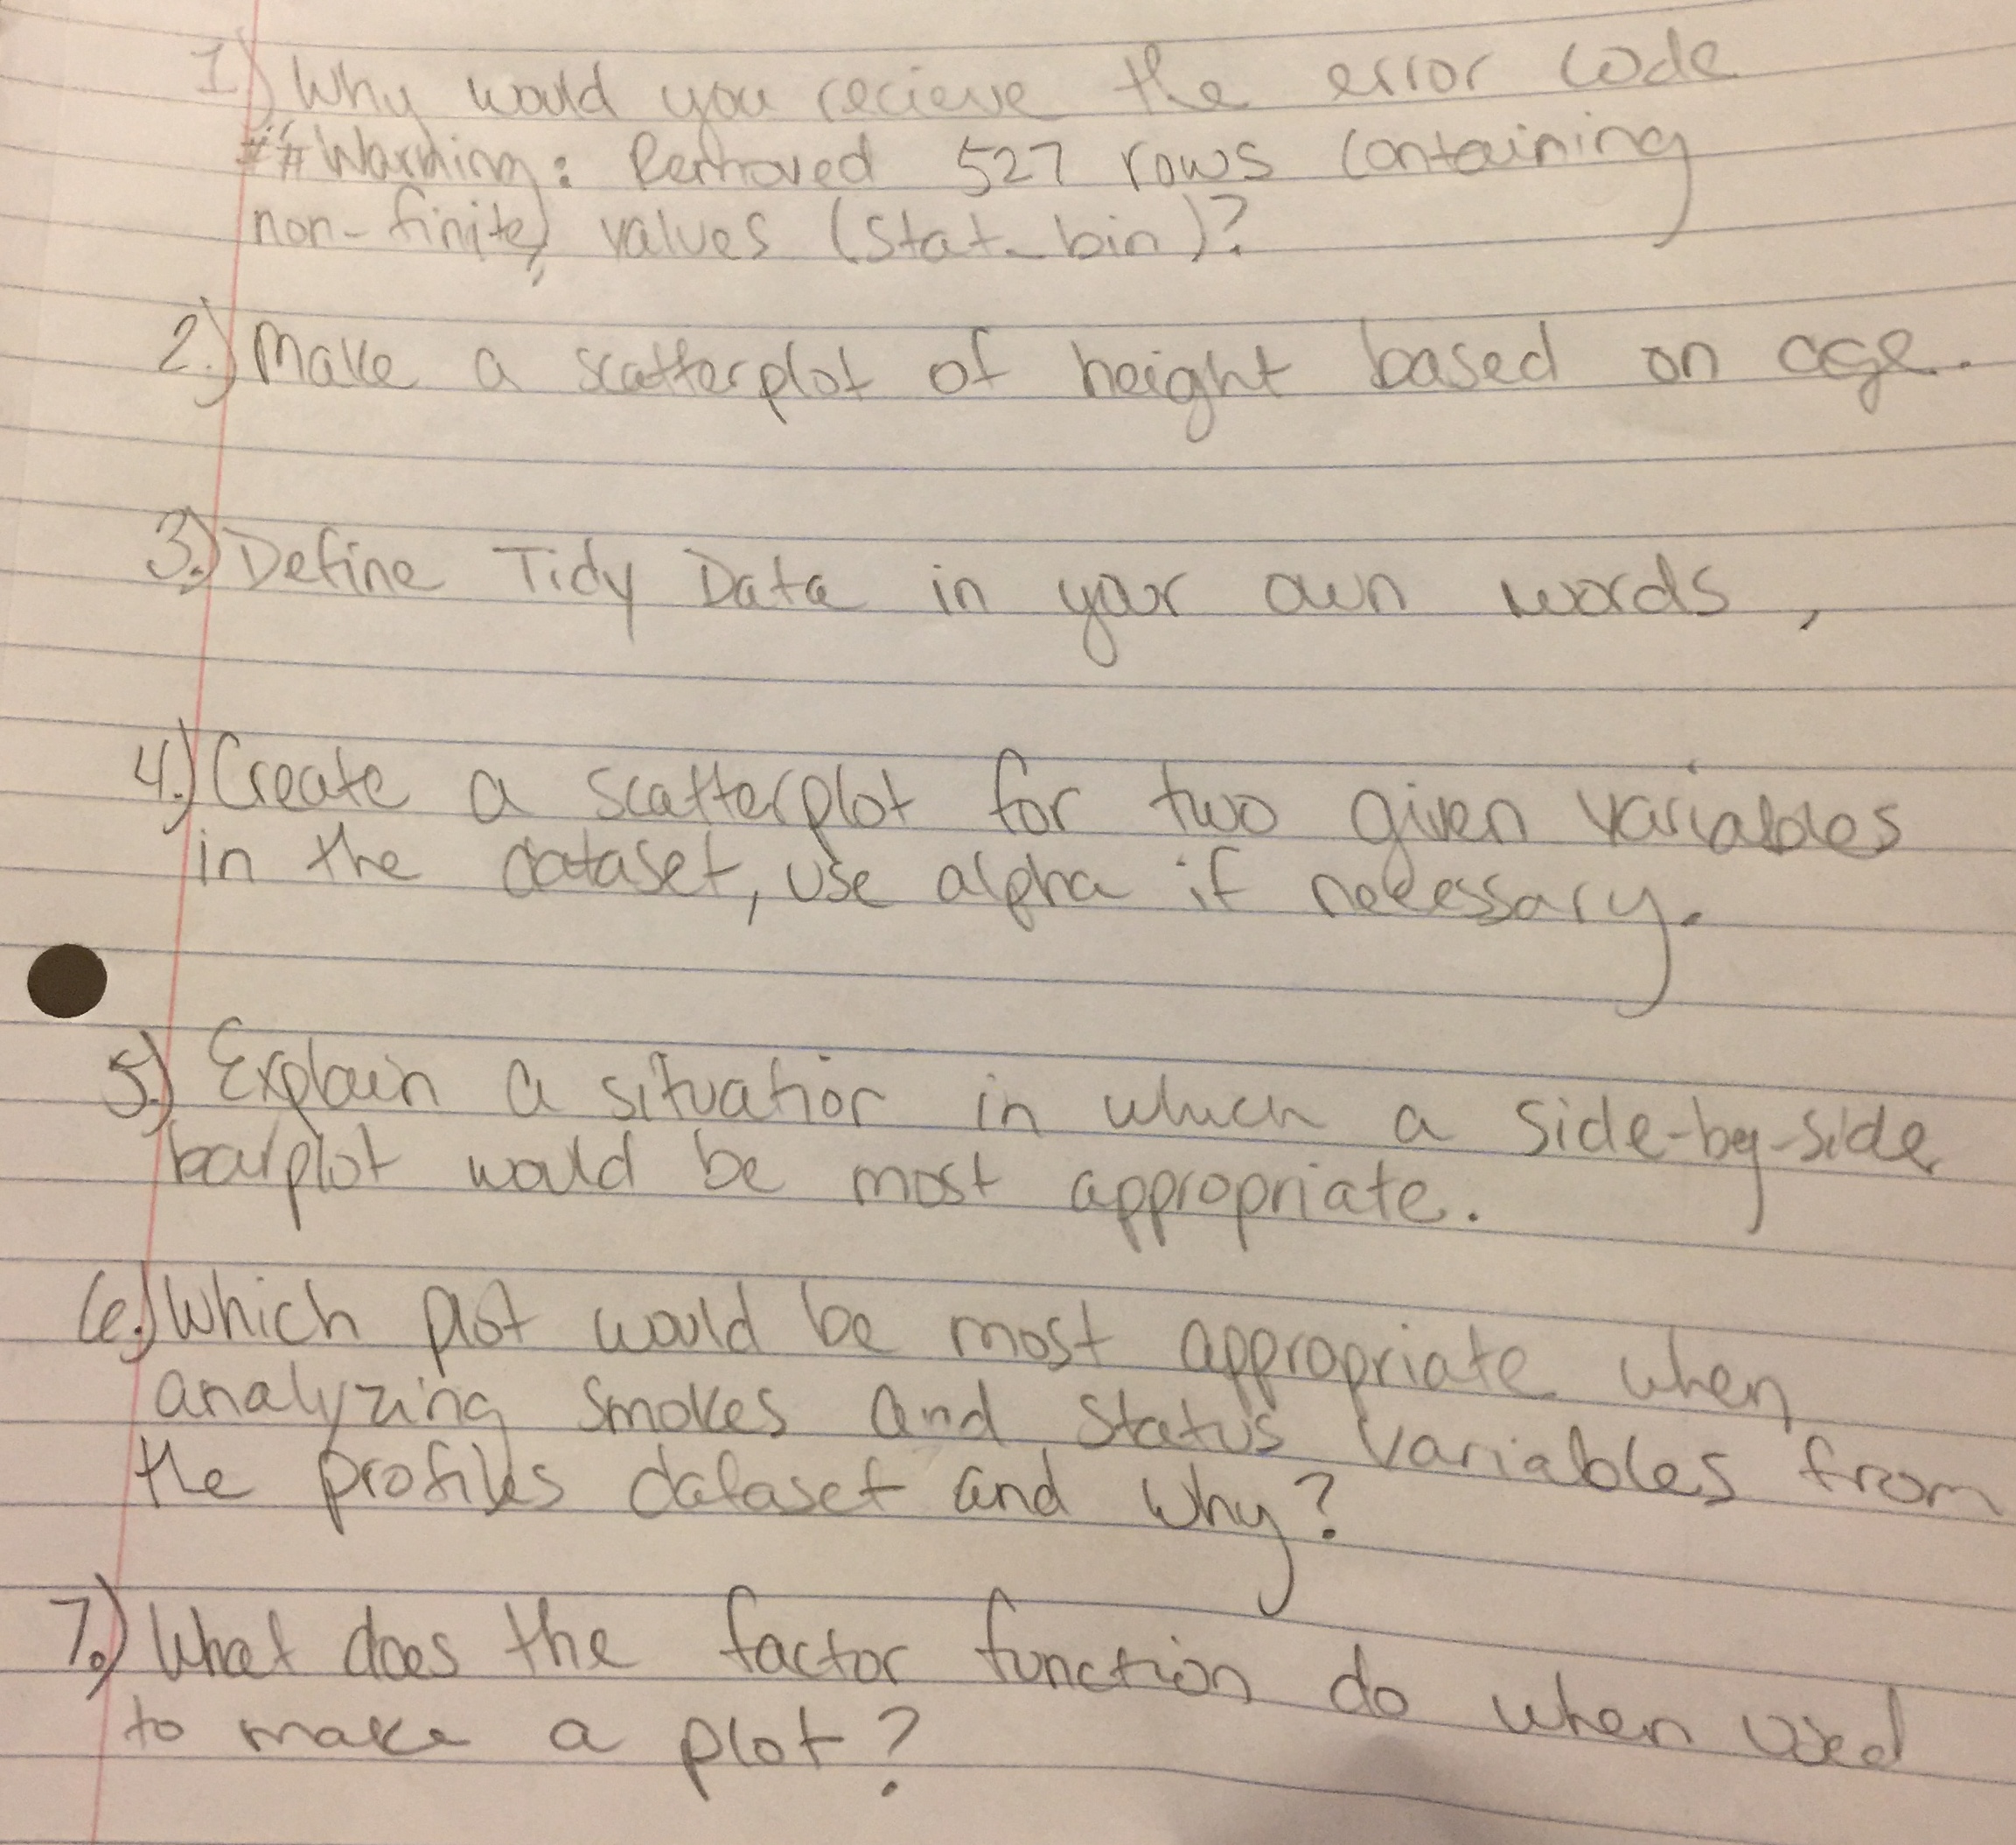 1) Why would you recieve the error code
## Warning: Removed 527 rows containing
non-finite values (stat_bin)?
2.) Make a scatterplot of height based on age.
3.) Define Tidy Data in your own words,
4.) Create a scatterplot for two given variables
in the dataset, use alpha if necessary.
5.) Explain a situation in which a side-by-side
barplot would be most appropriate.
6.) Which plot would be most appropriate when
analyzing smokes and status variables from
the profiles dataset and why?
7.) What does the factor function do when used
to make a plot?